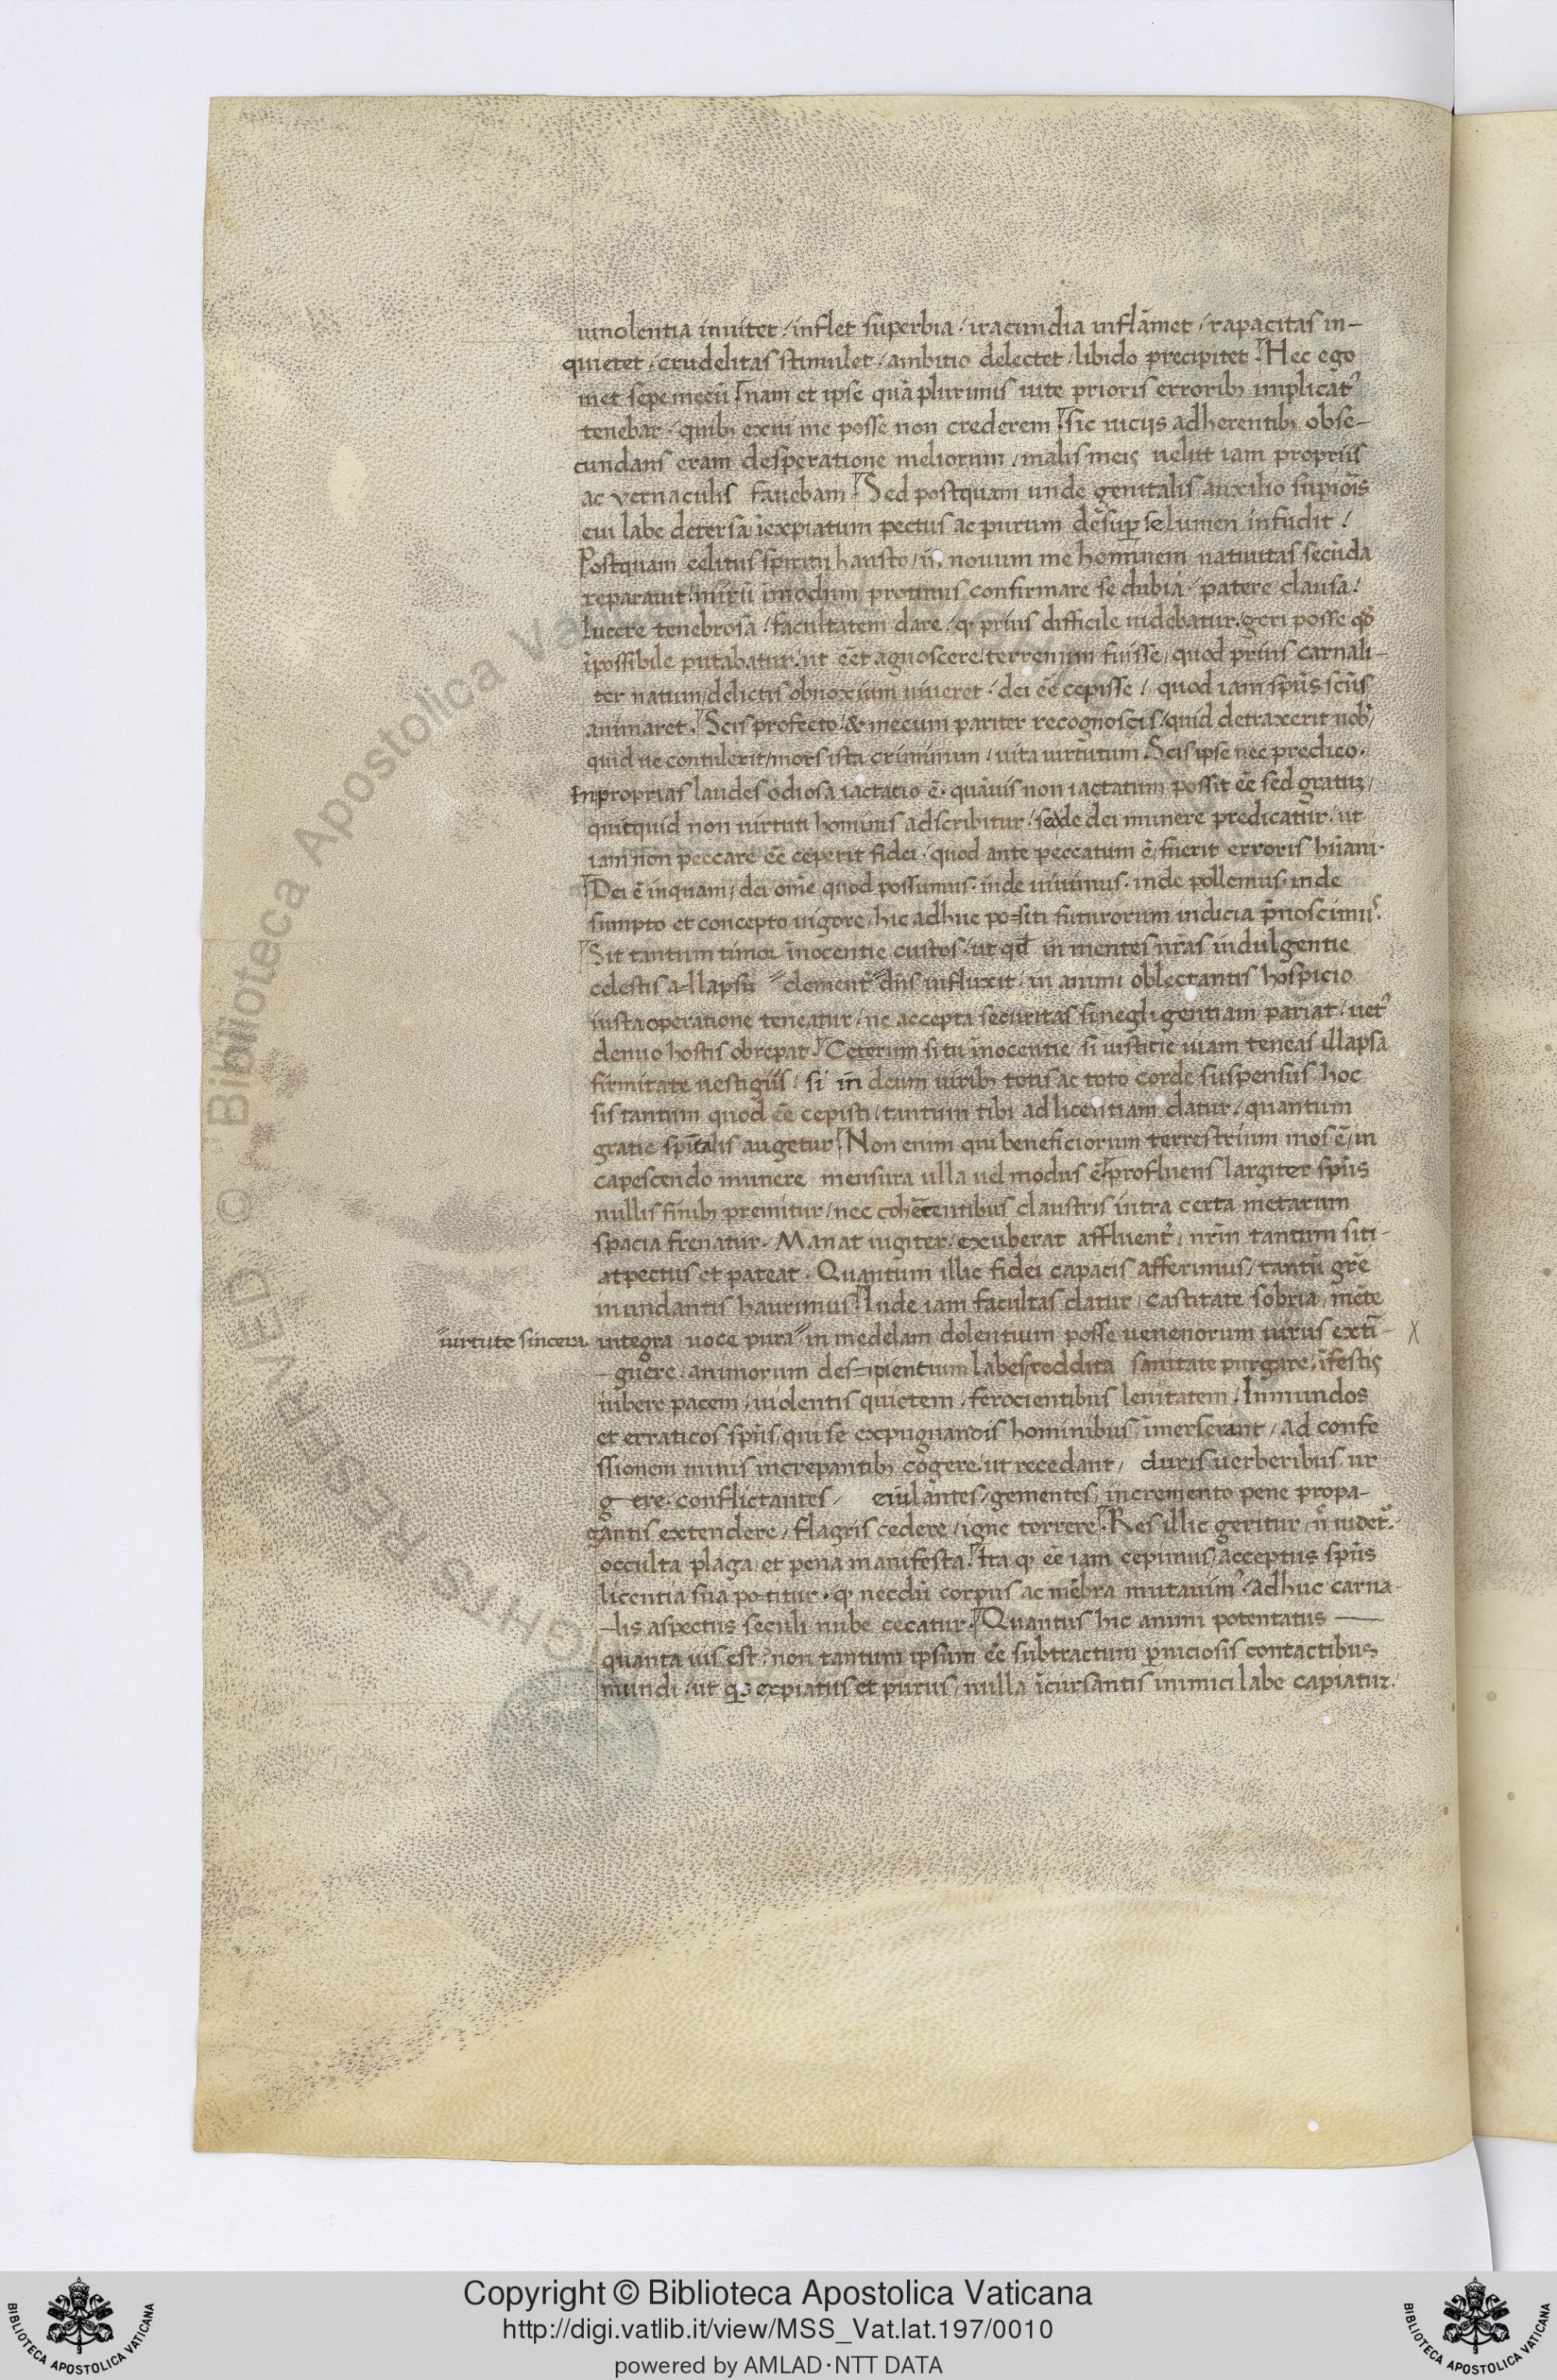 uinolentia inuitet / inflet superbia / iracundia inflāmet / rapacitas in-
quietet / crudelitas stimulet / ambitio delectet / libido precipitet. Hec ego
met sepe mecū nam et ipse quā plurimis uite prioris erroribꝫ implicatꝰ
tenebar / quibꝫ exui me posse non crederem. sic uicijs adherentibꝫ obse-
cundans eram desperatione meliorum / malis meis uelut iam propriis
ac vernaculis fauebam. Sed postquam unde genitalis auxilio supioīs
eui labe detersa ī expiatum pectus ac purum desup se lumen infudit /
Postquam celitus spiritu hausto / in nouum me hominem natiuitas secūda
reparauit / mirū īmodum protinus confirmare se dubia / patere clausa /
lucere tenebrosa / facultatem dare / ꝙ prius difficile uidebatur / geri posse qđ
īpossibile putabatur / ut eēt agnoscere terrenum fuisse / quod prius carnali-
ter natum / delictis obnoxium uiueret / dei eē cepisse / quod iam spūs scūs
animaret. Scis profecto & mecum pariter recognoscis / quid detraxerit nobꝰ /
quid ue contulerit / mors ista criminum / uita uirtutum. Scis ipse nec predico.
In proprias laudes odiosa iactatio ē. quāuis non iactatum possit eē sed gratuꝫ /
quitquid non uirtuti hominis adscribitur / sed de dei munere predicatur / ut
iam non peccare eē ceperit fidei / quod ante peccatum ē / fuerit erroris hūani.
Dei ē inquam / dei om̄e quod possumus. inde uiuimus. inde pollemus. inde
sumpto et concepto uigore / hic adhuc po-siti futurorum indicia p̄noscimus.
Sit tantum timor īnocentie custos / ut qd in mentes nr̄as indulgentie
celestis a-llapsu clementꝰ dn̄s influxit / in animi oblectantis hospicio
iusta operatione teneatur / ne accepta securitas si negligentiam pariat / uetꝰ
denuo hostis obrepat. Ceterum si tu īnocentie / si iusticie uiam teneas illapsa
firmitate uestigiis / si in deum uiribꝫ totis ac toto corde suspensus / hoc
sis tantum quod eē cepisti / tantum tibi ad licentiam datur / quantum
gratie spūtalis augetur. Non enim qui beneficiorum terrestrium mos ē / in
capescendo munere mensura ulla uel modus ē. profluens largiter spūs
nullis finibꝫ premitur / nec cohercentibus claustris intra certa metarum
spacia frenatur. Manat iugiter / exuberat affluentꝰ / nr̄m tantum siti-
at pectus et pateat. Quantum illic fidei capacis afferimus / tantū grē
inundantis haurimus. Inde iam facultas datur / castitate sobria / mēte
uirtute sincera integra uoce pura in medelam dolentium posse uenenorum uirus extī-
-guere / animorum des-ipientium labes reddita sanitate purgare / īfestis
iubere pacem / uiolentis quietem / ferocientibus lenitatem / Inmundos
et erraticos spūs / qui se expugnandis hominibus īmerserant / ad confe
ssionem minis increpantibꝫ cogere / ut recedant / duris uerberibus ur
g-ere / conflictantes / eiulantes / gementes / incremento pene propa-
gantis extendere / flagris cedere / igne torrere. Res illic geritur / n̄ uidetꝰ.
occulta plaga et pena manifesta. Ita ꝙ eē iam cepimus / acceptus spūs
licentia sua po-titur. ꝙ necdū corpus ac mēbra mutauimꝰ. adhuc carna-
-lis aspectus seculi nube cecatur. Quantus hic animi potentatus
quanta uis est. non tantum ipsum eē subtractum ꝑniciosis contactibus
mundi / ut qs expiatus et purus / nulla īcursantis inimici labe capiatur.
X
Copyright © Biblioteca Apostolica Vaticana
http://digi.vatlib.it/view/MSS_Vat.lat.197/0010
powered by AMLAD·NTT DATA